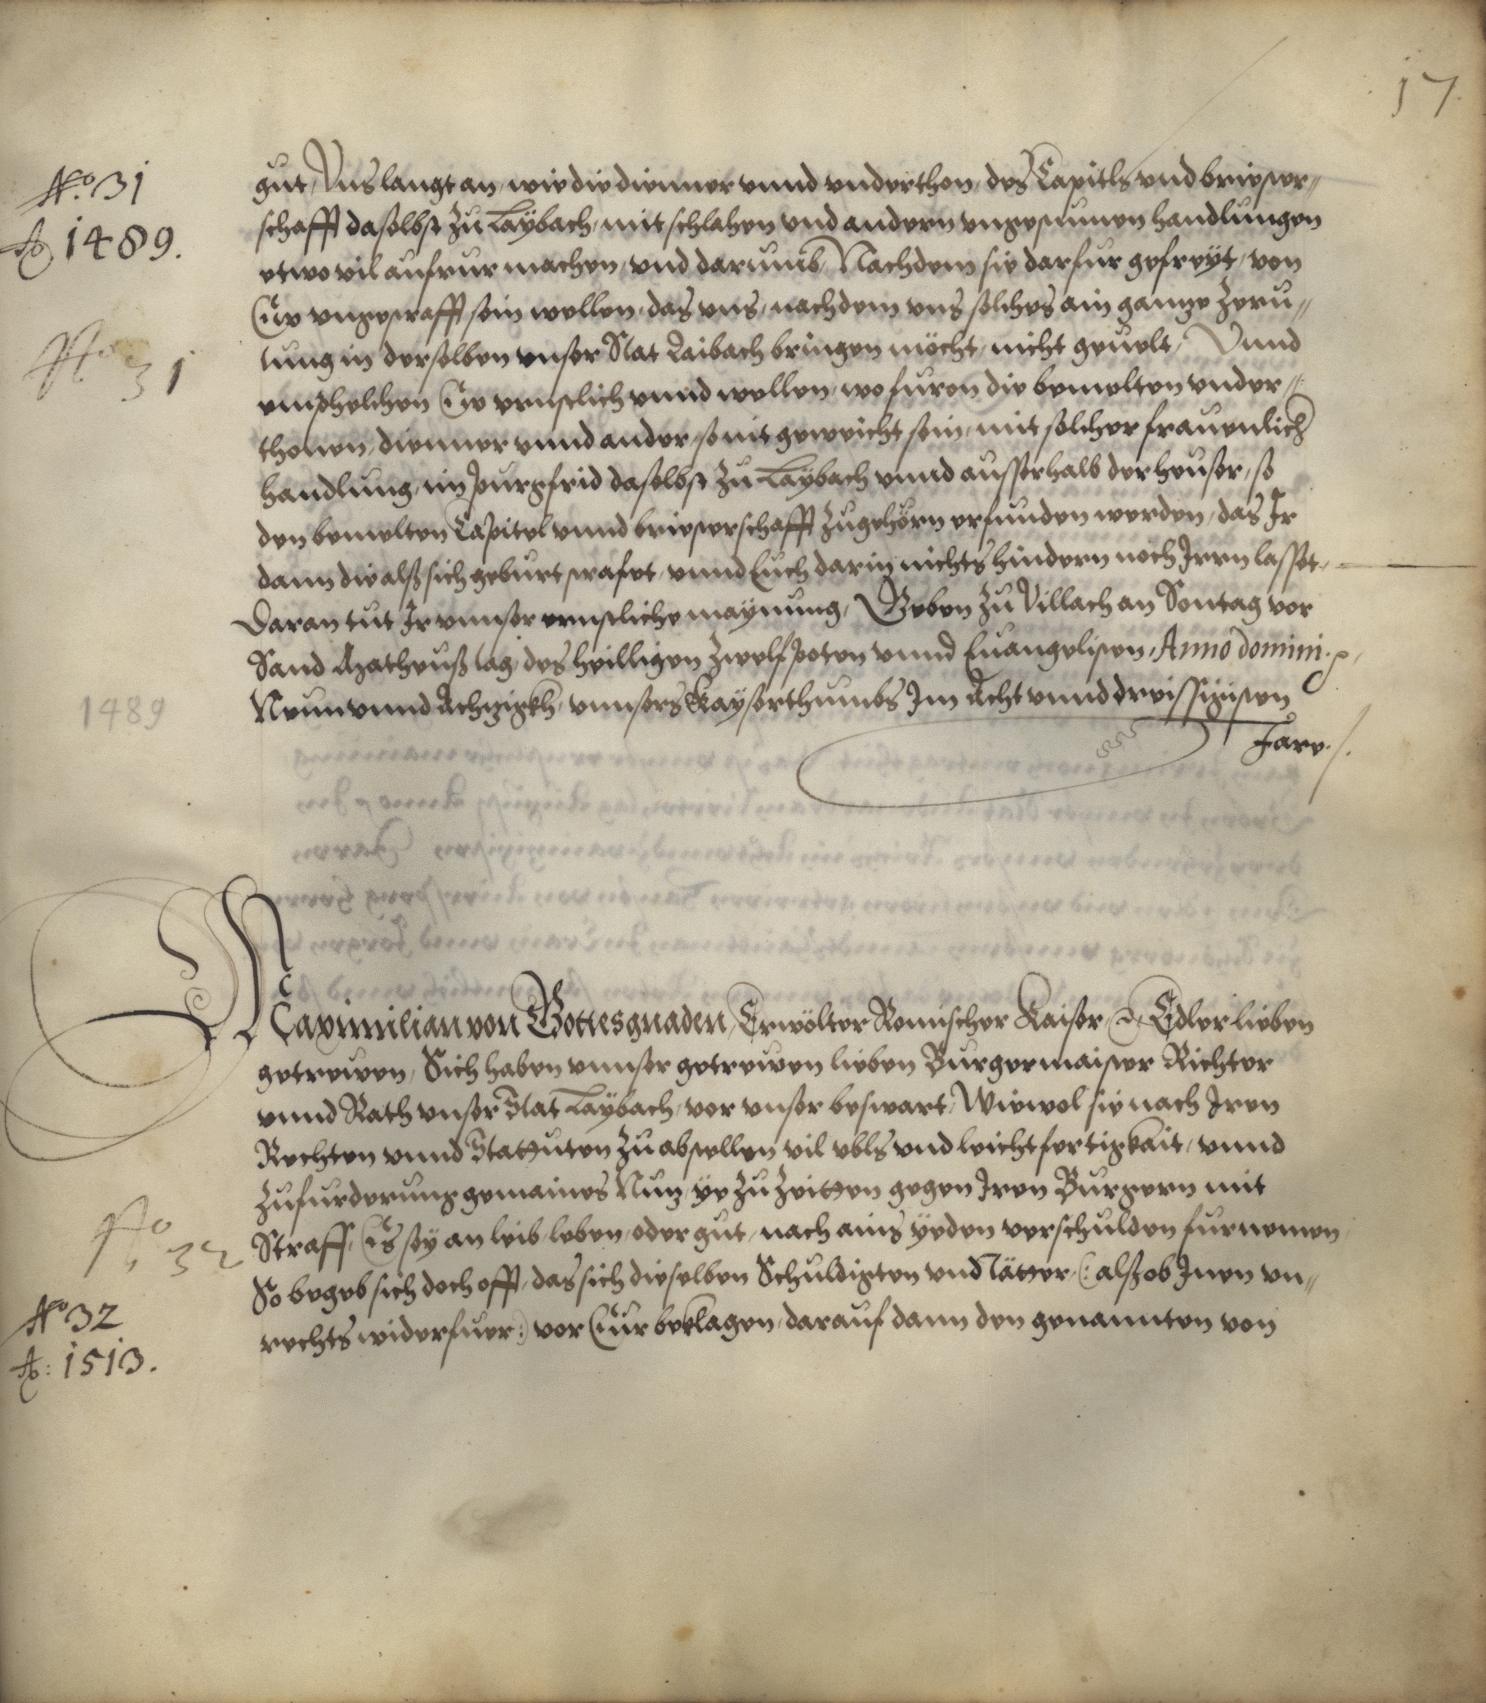 17.
No. 31
Ao 1489.
gut, Uns langt an, wie die dienner vnnd vnderthon, des Capitls vnd briester-
schafft daselbst zu Laÿbach, mit schlahen vnd andern vngestumen handlungen
etwo vil aufrur machen, vnd darumb, Nachdem sie darfur gefreyt, von
Eüe vngestrafft sein wellen, das vns, nachdem vns solches ain gantze zeru-
tung in derselben vnser Stat Laibach bringen möcht, nicht geuelt, Vnnd
No 31
emphelchen Eüe ernstlich vnnd wellen, wo furon die bemelten vnder-
thonen, dienner vnnd ander, so nit geweicht sein, mit solcher frauenlich
handlung, im purgfrid daselbst zu Laÿbach vnnd ausserhalb der heuser, so
den bemelten Capitel vnnd briesterschafft zugehörn erfunden werden, das Ir
dann die alß sich geburt strafet, vnnd Euch darin nichts hindern noch Irrn lasset,
Daran tut Ir vnnser ernstliche maÿnung, Geben zu Villach an Sontag vor
Sand Matheuß tag, des heilligen zwelfpoten vnnd Euangelisten, Anno domini
Neun vnnd Achtzigkh, vnnsers Kaÿserthumbs Im Acht vnnd dreissigisten
1489
Jare.
Maximilian von Gottes gnaden, Erwölter Romischer Kaiser, Edler lieben
getrewen, Sich haben vnnser getrewen lieben Burgermaister Richter
vnnd Rath vnser Stat Laÿbach, vor vnser beswart, Wiewol sie nach Iren
Rechten vnnd Stattuten zu abstellen vil vbls vnd leichtfertigkait, vnnd
zufurderung gemaines Nutz, ye zu Zeitten gegen Iren Burgern mit
Straff, Es seÿ an leib leben, oder gut, nach ains yeden verschulden furnemen
No 32
So begeb sich doch offt, das sich dieselben Schuldigten vnd Tätter, (: alß ob Inen vn-
No 32
rechts widerfuer:) vor Eur beklagen, darauf dann den genannten von
Ao: 1513.